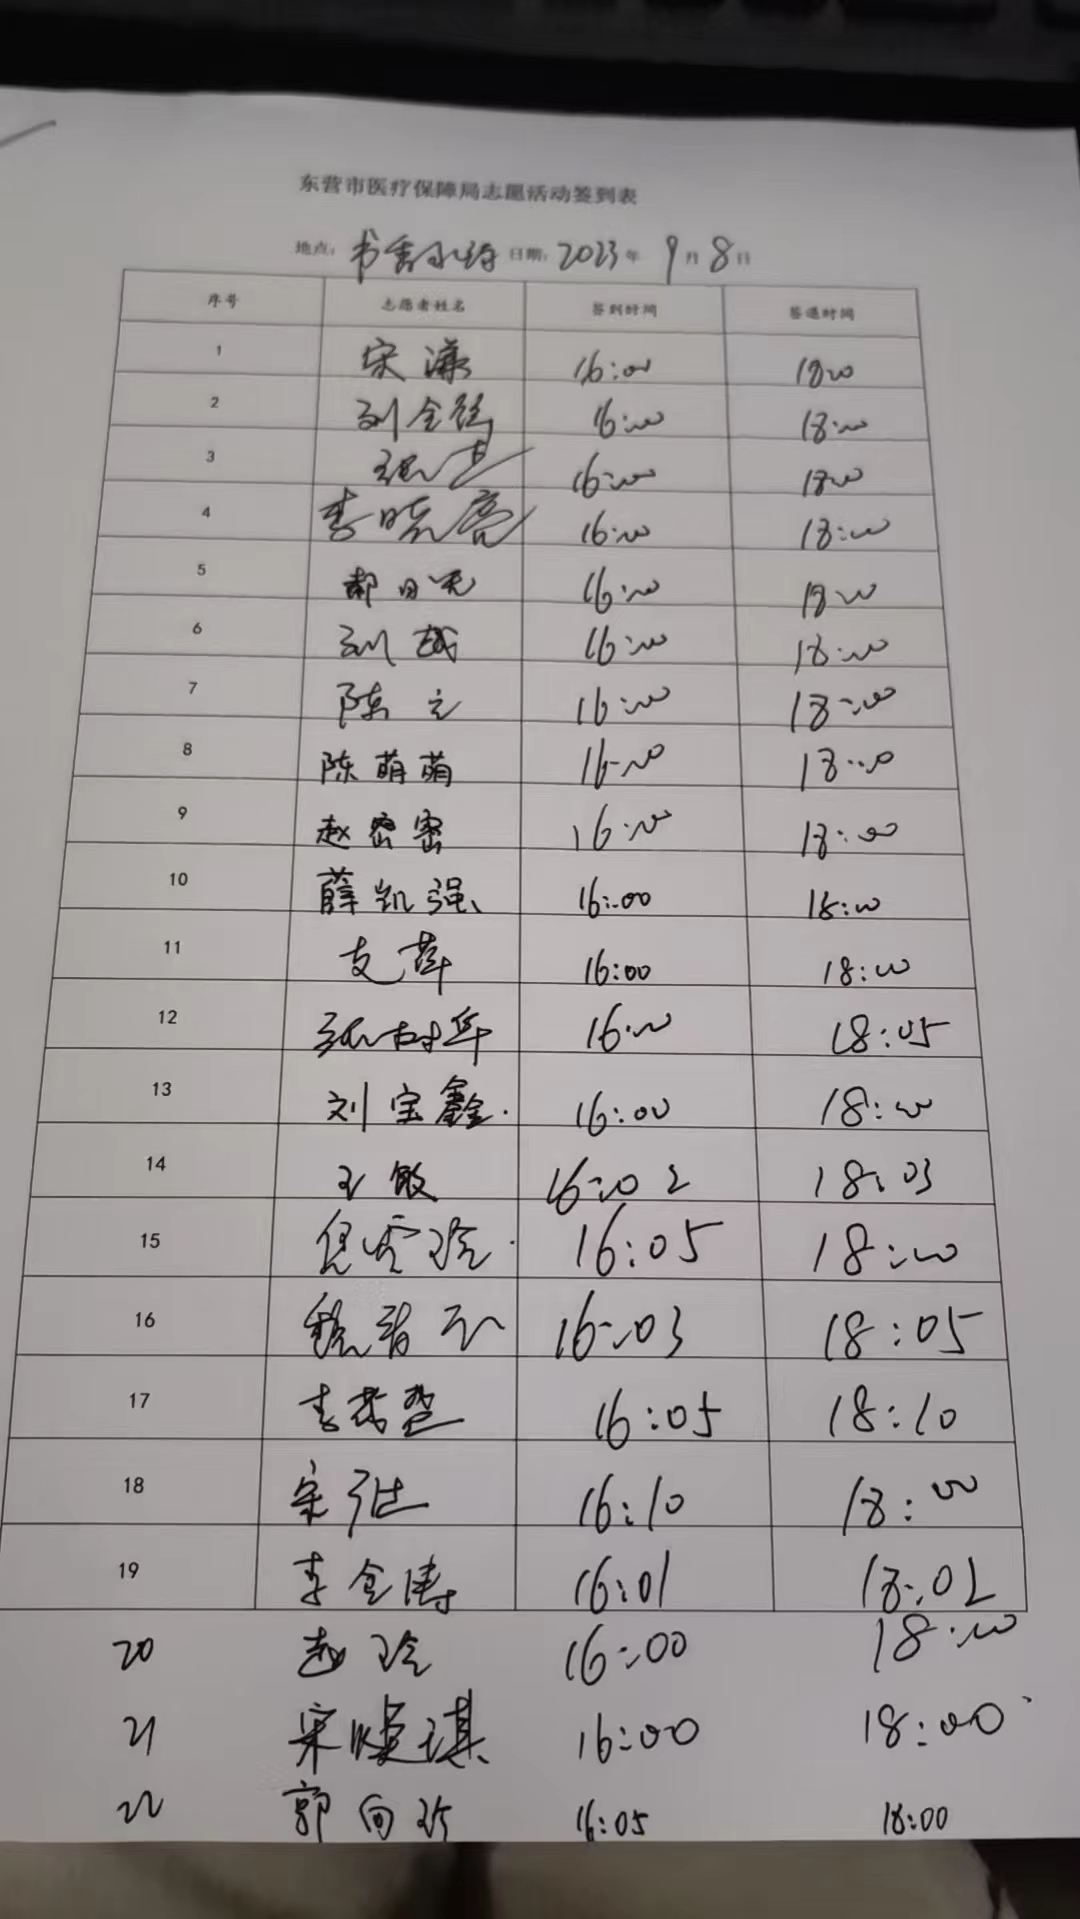 东营市医疗保障局志愿活动签到表
地点: 书香 日期: 2023年 9月8日
序号 志愿者姓名 签到时间 签退时间
1 宋潇 16:00 18:00
2 刘金 16:00 18:00
3 16:00 18:00
4 李晓亮 16:00 18:00
5 16:00 18:00
6 刘越 16:00 18:00
7 陈 16:00 18:00
8 陈萌萌 16:00 18:00
9 赵密密 16:00 18:00
10 薛凯强 16:00 18:00
11 支萍 16:00 18:00
12 张树华 16:00 18:05
13 刘宝鑫 16:00 18:00
14 王敏 16:02 18:03
15 16:05 18:00
16 16:03 18:05
17 李 16:05 18:10
18 宋 16:10 18:00
19 李 16:01 18:02
20 赵玲 16:00 18:00
21 宋 琪 16:00 18:00
22 郭向 16:05 18:00